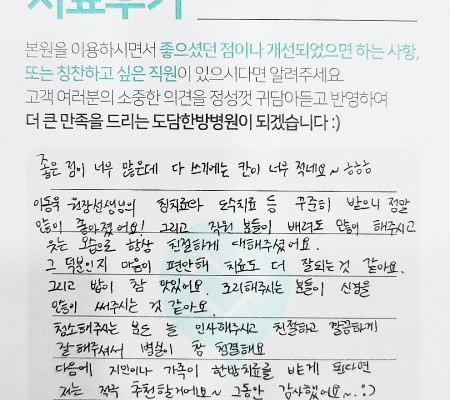 치료후기
본원을 이용하시면서 좋으셨던 점이나 개선되었으면 하는 사항,
또는 칭찬하고 싶은 직원이 있으시다면 알려주세요.
고객 여러분의 소중한 의견을 정성껏 귀담아듣고 반영하여
더 큰 만족을 드리는 도담한방병원이 되겠습니다 :)
좋은 점이 너무 많은데 다 쓰기에는 칸이 너무 적네요~ ㅎㅎㅎ
이동욱 원장선생님의 침치료와 도수치료 등 꾸준히 받으니 정말
많이 좋아졌어요! 그리고 직원 분들이 배려도 많이 해주시고
웃는 모습으로 항상 친절하게 대해주셨어요.
그 덕분인지 마음이 편안해 치료도 더 잘되는 것 같아요.
그리고 밥이 참 맛있어요. 조리해주시는 분들이 신경을
많이 써주시는 것 같아요.
청소해주시는 분은 늘 인사해주시고 친절하고 깔끔하게
잘 해주셔서 병실이 참 청결해요
다음에 지인이나 가족이 한방치료를 받게 된다면
저는 적극 추천할거에요~ 그동안 감사했어요~. :)